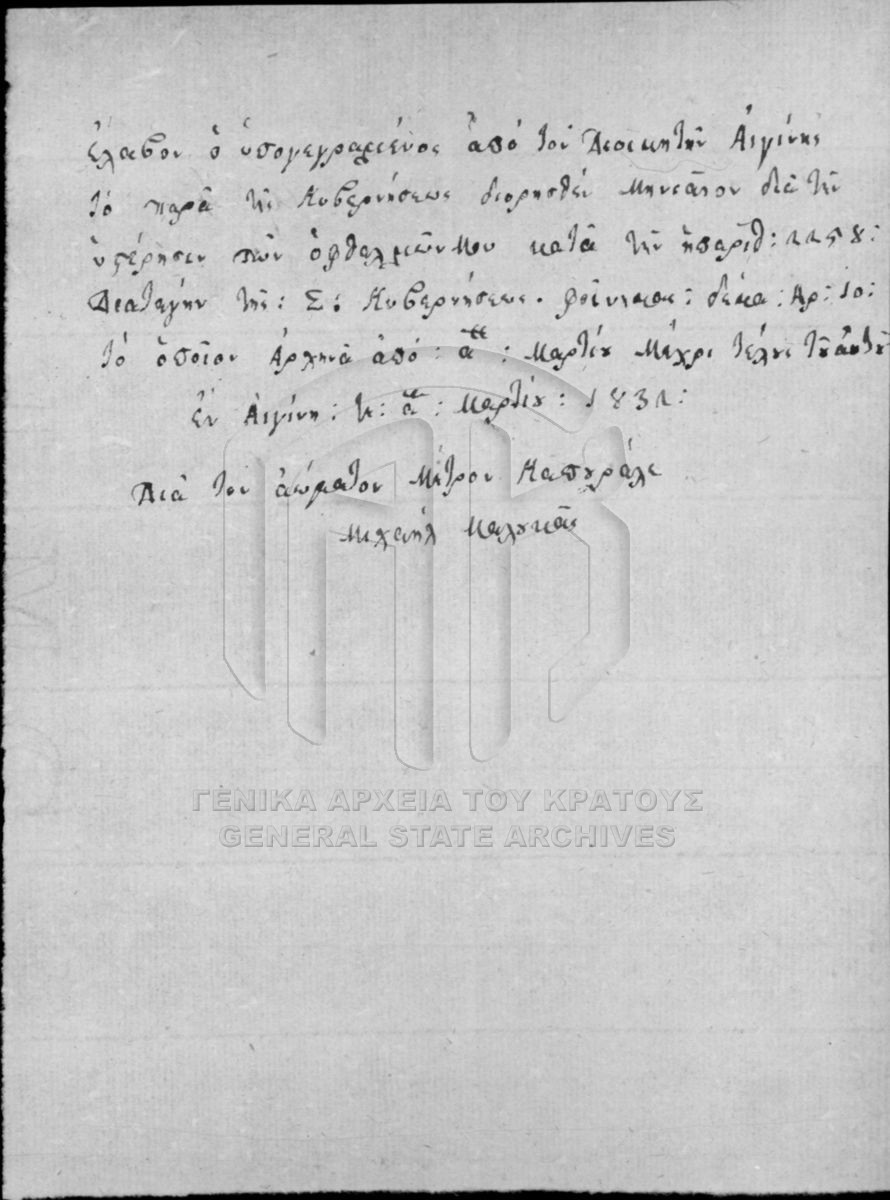 ἔλαβον ὁ ὑπογεγραμένος ἀπὸ τὸν Διοικητὴν Αἰγίνης
τὸ παρὰ τῆς Κυβερνήσεως διορησθὲν Μηνιᾶτον διὰ τὴν
ὑστέρησιν τῶν ὀφθαλμῶν Μου κατὰ τὴν ἠπαρῖθ: 1158:
Διαταγὴν τῆς: Σ: Κυβερνήσεως. φοίνικας: δέκα: Αρ: 10:
τὸ ὁποῖον ἀρχηνᾶ ἀπό: α: Μαρτίου Μέχρι τέλους τοῦ αὐτοῦ
Ἐν Αἰγίνῃ: τ: α: Μαρτίου: 1831:
Διὰ τὸν ἀόματον Μῆτρον Καπουράλε
Μιχαὴλ Μαλουκᾶς
ΓΕΝΙΚΑ ΑΡΧΕΙΑ ΤΟΥ ΚΡΑΤΟΥΣ
GENERAL STATE ARCHIVES